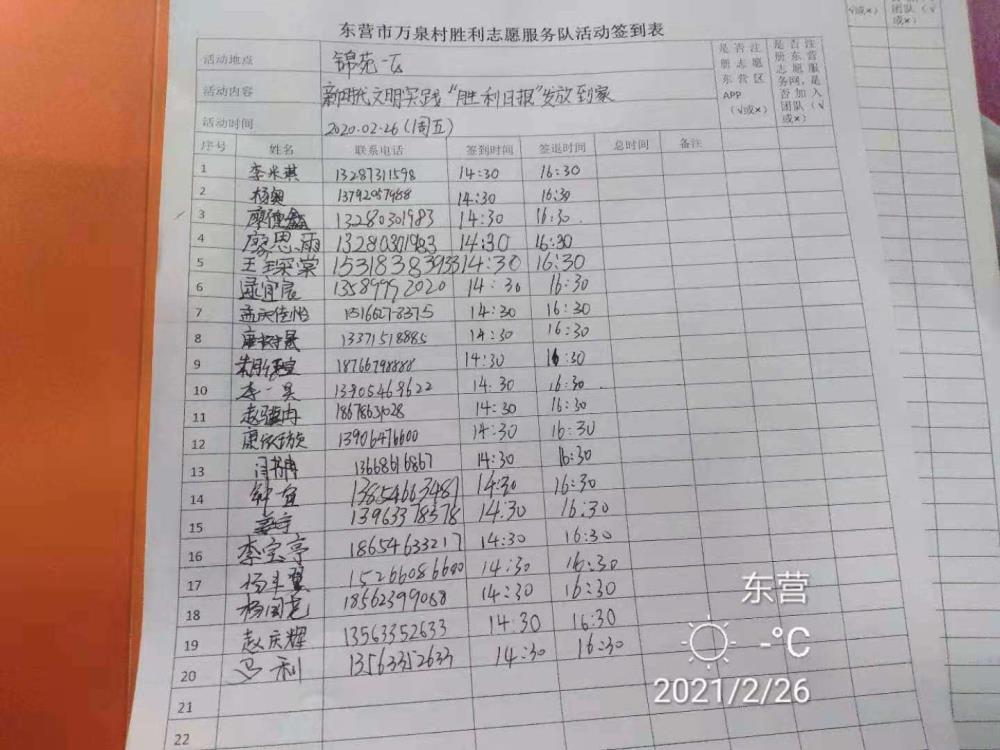 东营市万泉村胜利志愿服务队活动签到表
活动地点 锦苑一区
活动内容 新时代文明实践“胜利日报”发放到家
活动时间 2020.02.26(周五)
是否注册志愿东营区APP(√或×)
是否注册东营志愿服务网,是否加入团队(√或×)
序号 姓名 联系电话 签到时间 签退时间 总时间 备注
1 李米琪 13287311598 14:30 16:30
2 杨奥 13792057988 14:30 16:30
3 廖德鑫 13280301983 14:30 16:30
4 廖思雨 13280301983 14:30 16:30
5 王琛棠 15318383933 14:30 16:30
6 逯宜宸 13589992020 14:30 16:30
7 孟庆佳怡 14:30 16:30
8 13371518885 14:30 16:30
9 18766798888 14:30 16:30
10 李一昊 13905469622 14:30 16:30
11 赵骥冉 18678631028 14:30 16:30
12 13906476600 14:30 16:30
13 13668616867 14:30 16:30
14 钟宜 13854663481 14:30 16:30
15 姜宁 13963378378 14:30 16:30
16 李宝亭 18654633217 14:30 16:30
17 杨斗翼 15266086600 14:30 16:30
18 杨国尧 18562399088 14:30 16:30
19 赵庆辉 13563352633 14:30 16:30
20 马利 13563352633 14:30 16:30
21
22
东营
-°C
2021/2/26